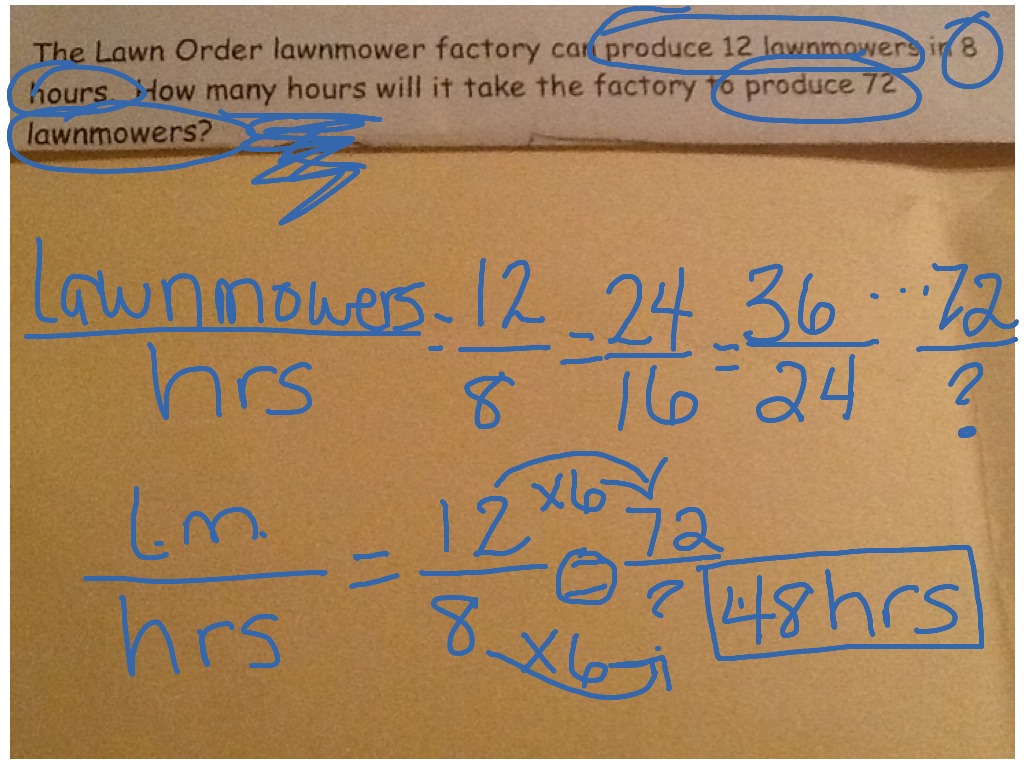 The Lawn Order lawnmower factory can produce 12 lawnmowers in 8
hours. How many hours will it take the factory to produce 72
lawnmowers?
Lawnmowers = 12 = 24 = 36 ... 72
hrs 8 16 24 ?
L.m. = 12 x6 = 72
hrs 8 x6 ? 48 hrs